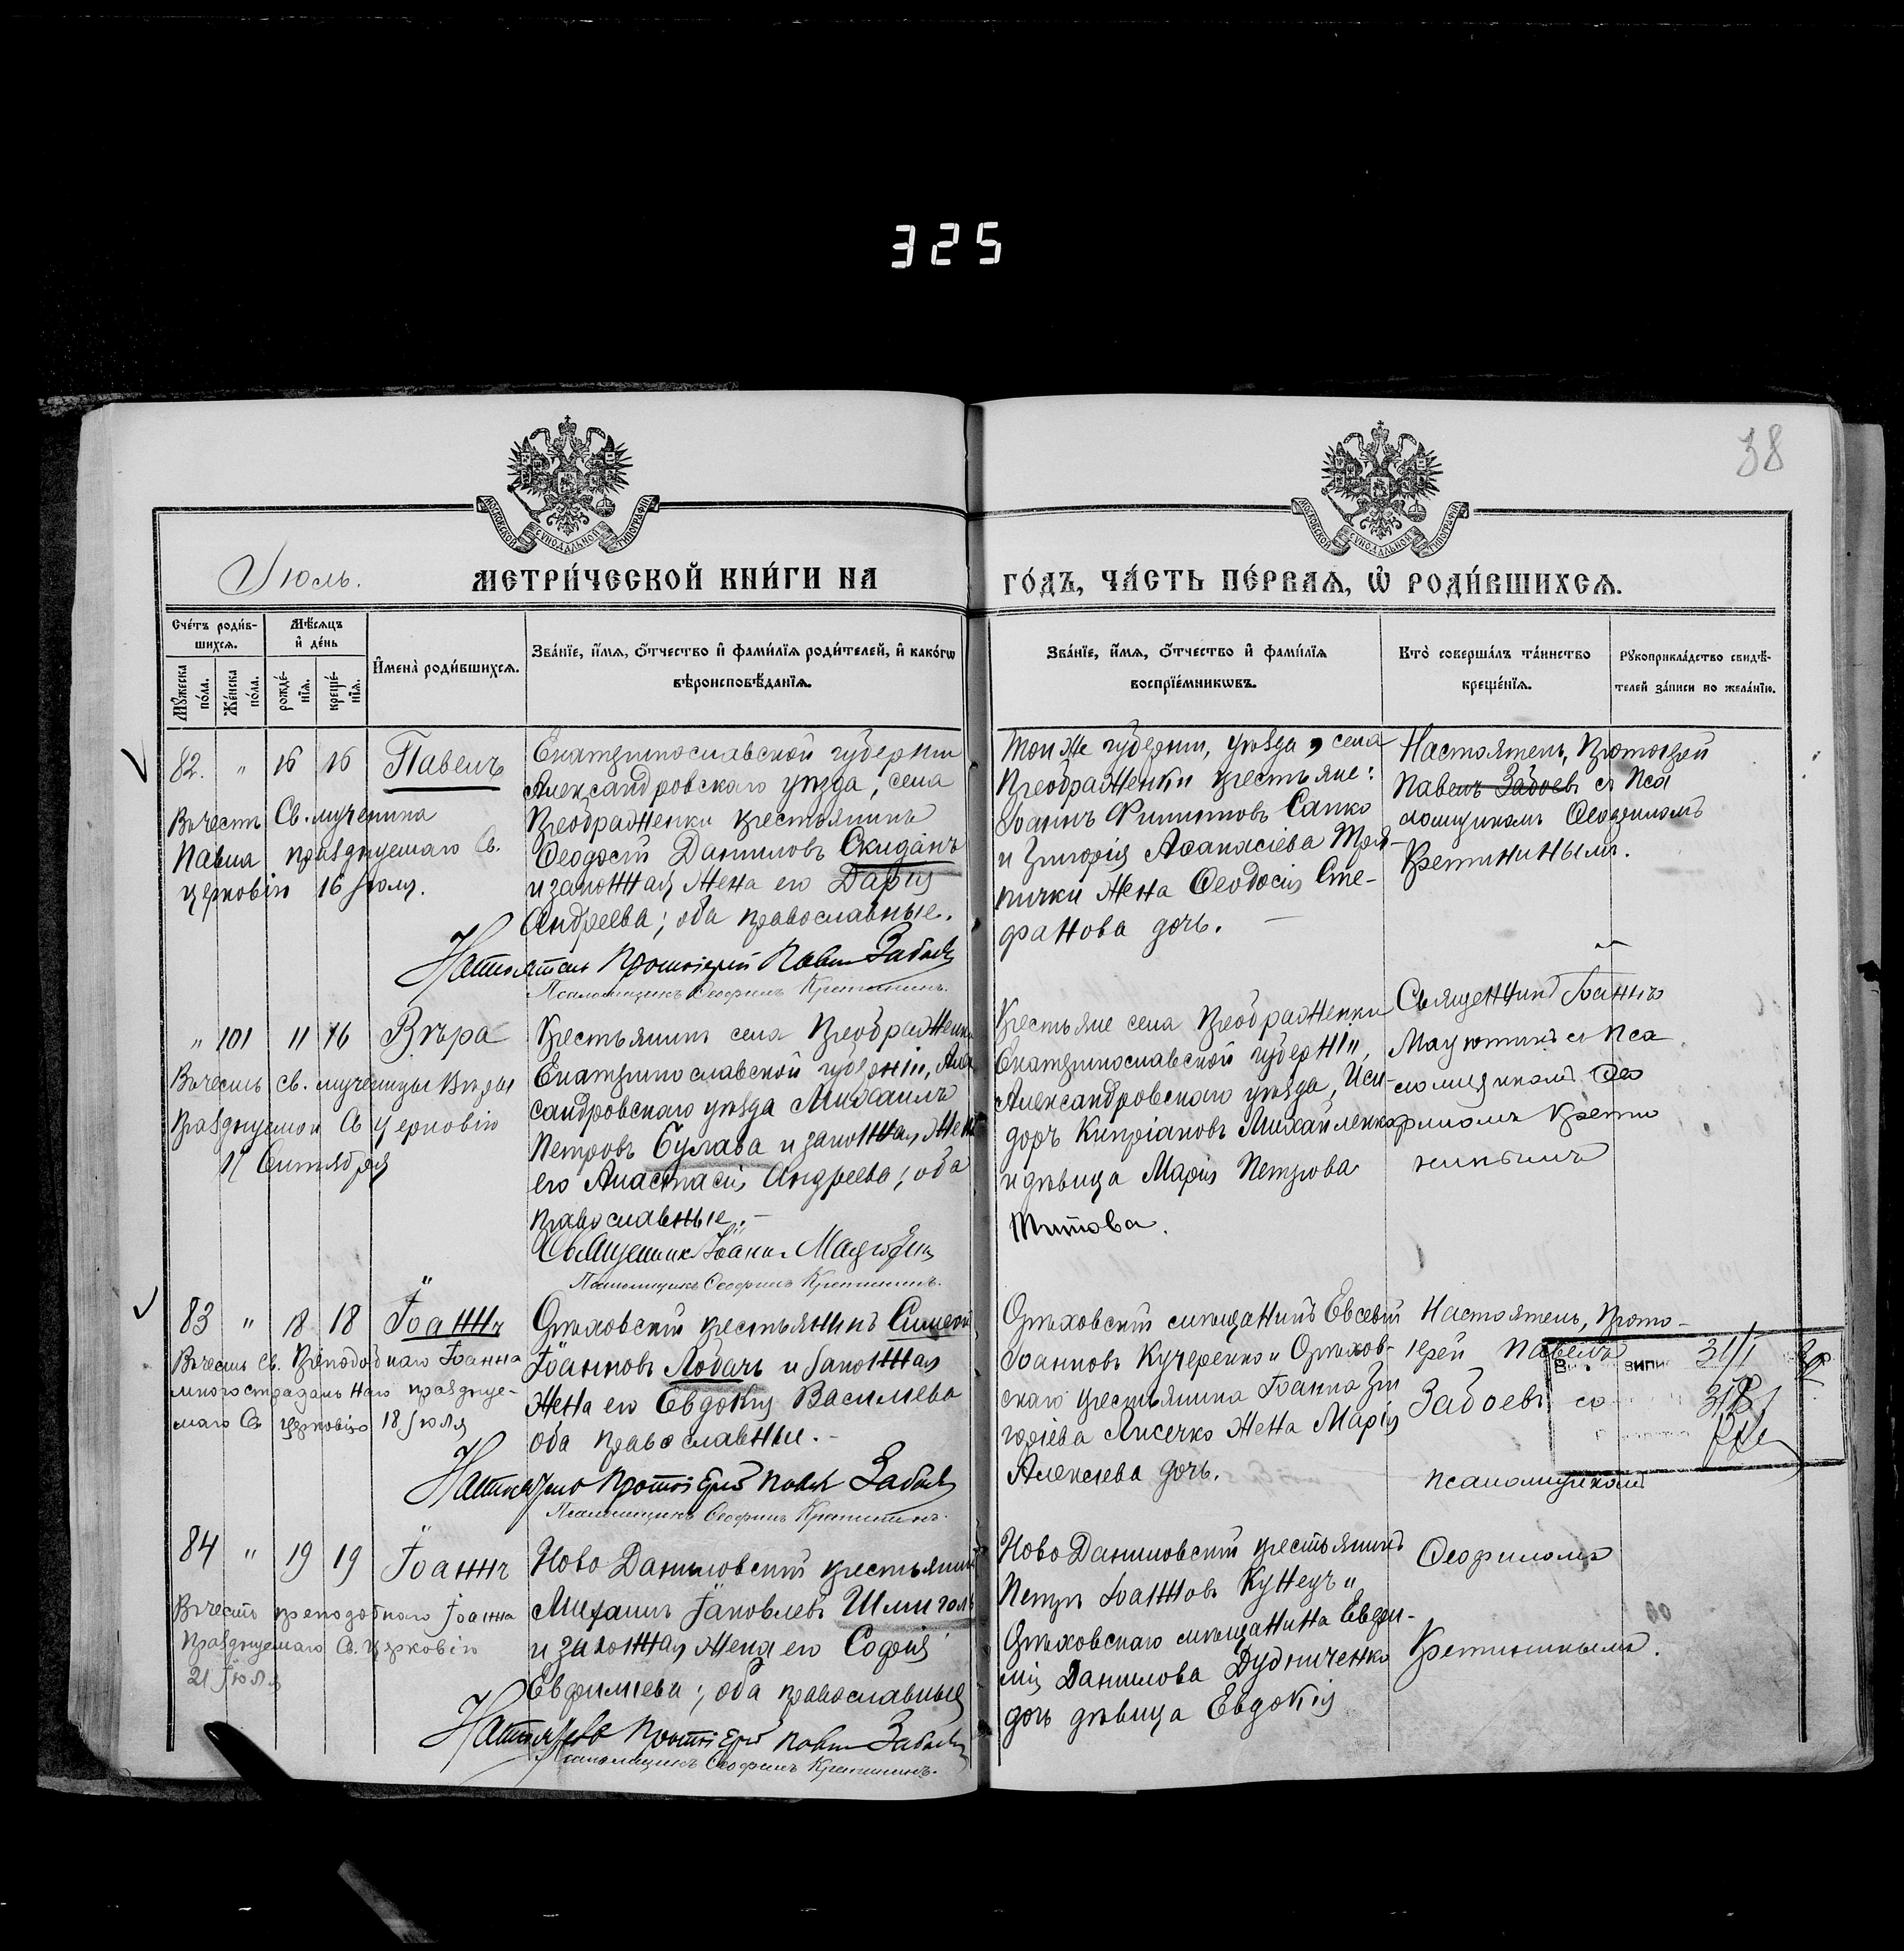 325
38
МОСКОВСКОЙ СѴНОДАЛЬНОЙ ТИПОГРАФІИ
МОСКОВСКОЙ СѴНОДАЛЬНОЙ ТИПОГРАФІИ
Іюль.
МЕТРИ́ЧЕСКОЙ КНИ́ГИ НА
ГО́ДЪ, ЧА́СТЬ ПЕ́РВАЯ, Ѡ҆ РОДИ́ВШИХСЯ.
Сче́тъ роди́в-
шихся.
Мѣ́сяцъ
и҆ де́нь
Мꙋ́жеска
по́ла.
Же́нска
по́ла.
рожде́-
нїя.
креще́-
нїя.
И҆мена̀ роди́вшихся.
Зва́нїе, и҆́мя, ѻ҆́тчество и҆ фами́лїя роди́телей, и҆ како́гѡ
вѣроисповѣ́данїя.
Зва́нїе, и҆́мя, ѻ҆́тчество и҆ фами́лїя
воспрїе́мникѡвъ.
Кто̀ соверша́лъ та́инство
креще́нїя.
Рꙋкоприкла́дство свидѣ́-
телей за́писи по жела́нїю.
82. " 16 16 Павелъ
Въ честь Св. мученика
Павла празднуемаго Св.
церковію 16 Іюля.
Екатеринославской губерніи
Александровскаго уѣзда, села
Преображенки крестьянинъ
Ѳеодосій Даниловъ Скиданъ
и законная жена его Дарія
Андреева; оба православные.
Настоятель Протоіерей Павелъ Забоевъ
Псаломщикъ Ѳеофилъ Кретининъ.
Той же губерніи, уѣзда, села
Преображенки крестьяне:
Іоаннъ Филиповъ Сапко
и Григорія Аѳанасіева Тря-
пички жена Ѳеодосія Сте-
фанова дочь.
Настоятель, Протоіерей
Павелъ Забоевъ съ Пса
ломщикомъ Ѳеофиломъ
Кретининымъ.
" 101 11 16 Вѣра
Въ честь св. мученицы Вѣры
Празднуемой Св церковію
17 Сентября
Крестьянинъ села Преображенки
Екатеринославской губерніи, Алек
сандровскаго уѣзда Михаилъ
Петровъ Булава и законная жена
его Анастасія Андреева; оба
православные.
Священникъ Іоаннъ
Псаломщикъ Ѳеофилъ Кретининъ.
Крестьяне села Преображенки
Екатеринославской губерніи,
Александровскаго уѣзда, Иси-
доръ Кипріановъ Михайленко
и дѣвица Марія Петрова
Титова.
Священникъ Іоаннъ
съ Пса
ломщикомъ Ѳео
филомъ Крети
нинымъ
83 " 18 18 Іоаннъ
Въ честь св. Преподобнаго Іоанна
многострадальнаго празднуе-
маго Св церковію 18 Іюля
Орѣховскій крестьянинъ Симеонъ
Іоанновъ Лобачъ и законная
жена его Евдокія Василіева
оба православные.
Настоятель Протоіерей Павелъ Забоевъ
Псаломщикъ Ѳеофилъ Кретининъ.
Орѣховскій мѣщанинъ Евсевій
Іоанновъ Кучеренко и Орѣхов-
скаго крестьянина Іоанна Гри
горіева Лисечко жена Марія
Алексіева дочь.
Настоятель, Прото-
іерей Павелъ
Забоевъ со
псаломщикомъ
84 " 19 19 Іоаннъ
Въ честь преподобнаго Іоанна
празднуемаго Св. церковію
21 Іюля
Ново Даниловскій крестьянинъ
Михаилъ Іаковлевъ Шмиголь
и законная жена его Софія
Евфиміева; оба православные
Настоятель Протоіерей Павелъ Забоевъ
Псаломщикъ Ѳеофилъ Кретининъ.
Ново Даниловскій крестьянинъ
Петръ Іоанновъ Кунецъ и
Орѣховскаго мѣщанина Евфи-
мія Данилова Дудниченко
дочь дѣвица Евдокія
Ѳеофиломъ
Кретининымъ.